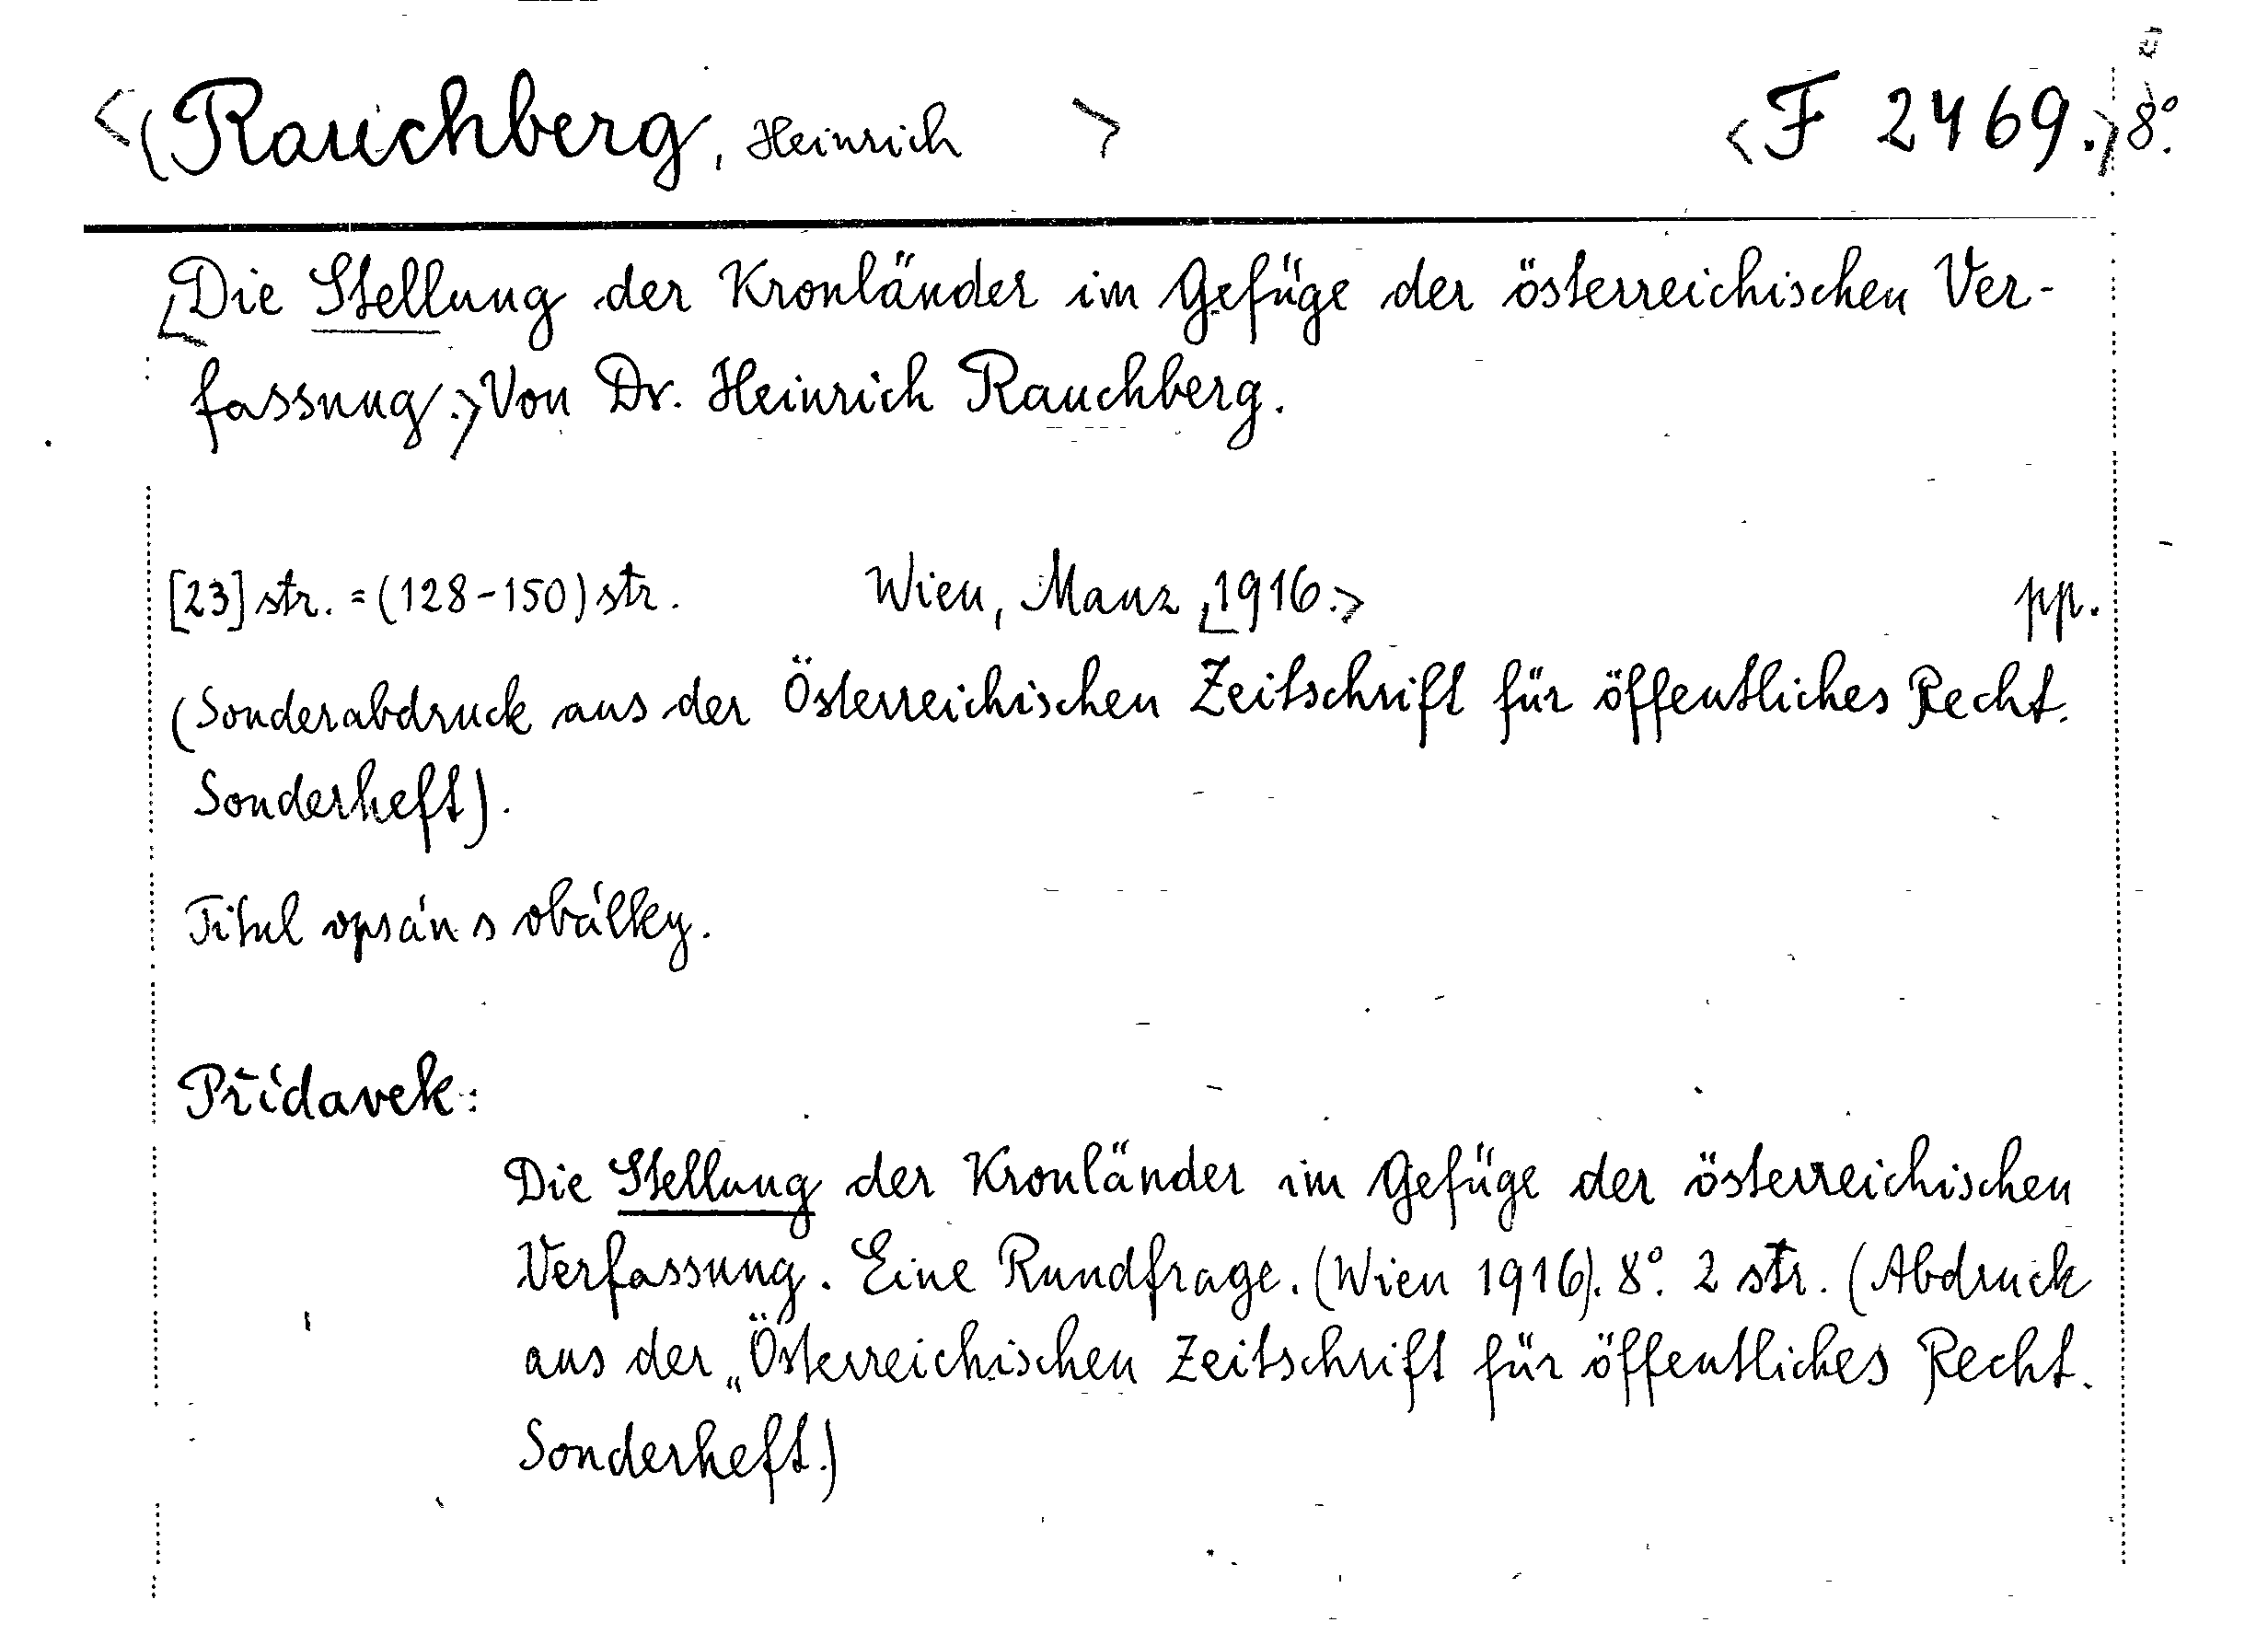 <(Rauchberg, Heinrich > <F 2469.> 8°.
<Die Stellung der Kronländer im Gefüge der österreichischen Ver-
fassung.> Von Dr. Heinrich Rauchberg.
[23] str. = (128-150) str. Wien, Manz <1916.> pp.
(Sonderabdruck aus der Österreichischen Zeitschrift für öffentliches Recht.
Sonderheft).
Titul opsán s obálky.
Přídavek:
Die Stellung der Kronländer im Gefüge der österreichischen
Verfassung. Eine Rundfrage. (Wien 1916). 8°. 2 str. (Abdruck
aus der „Österreichischen Zeitschrift für öffentliches Recht.
Sonderheft.)